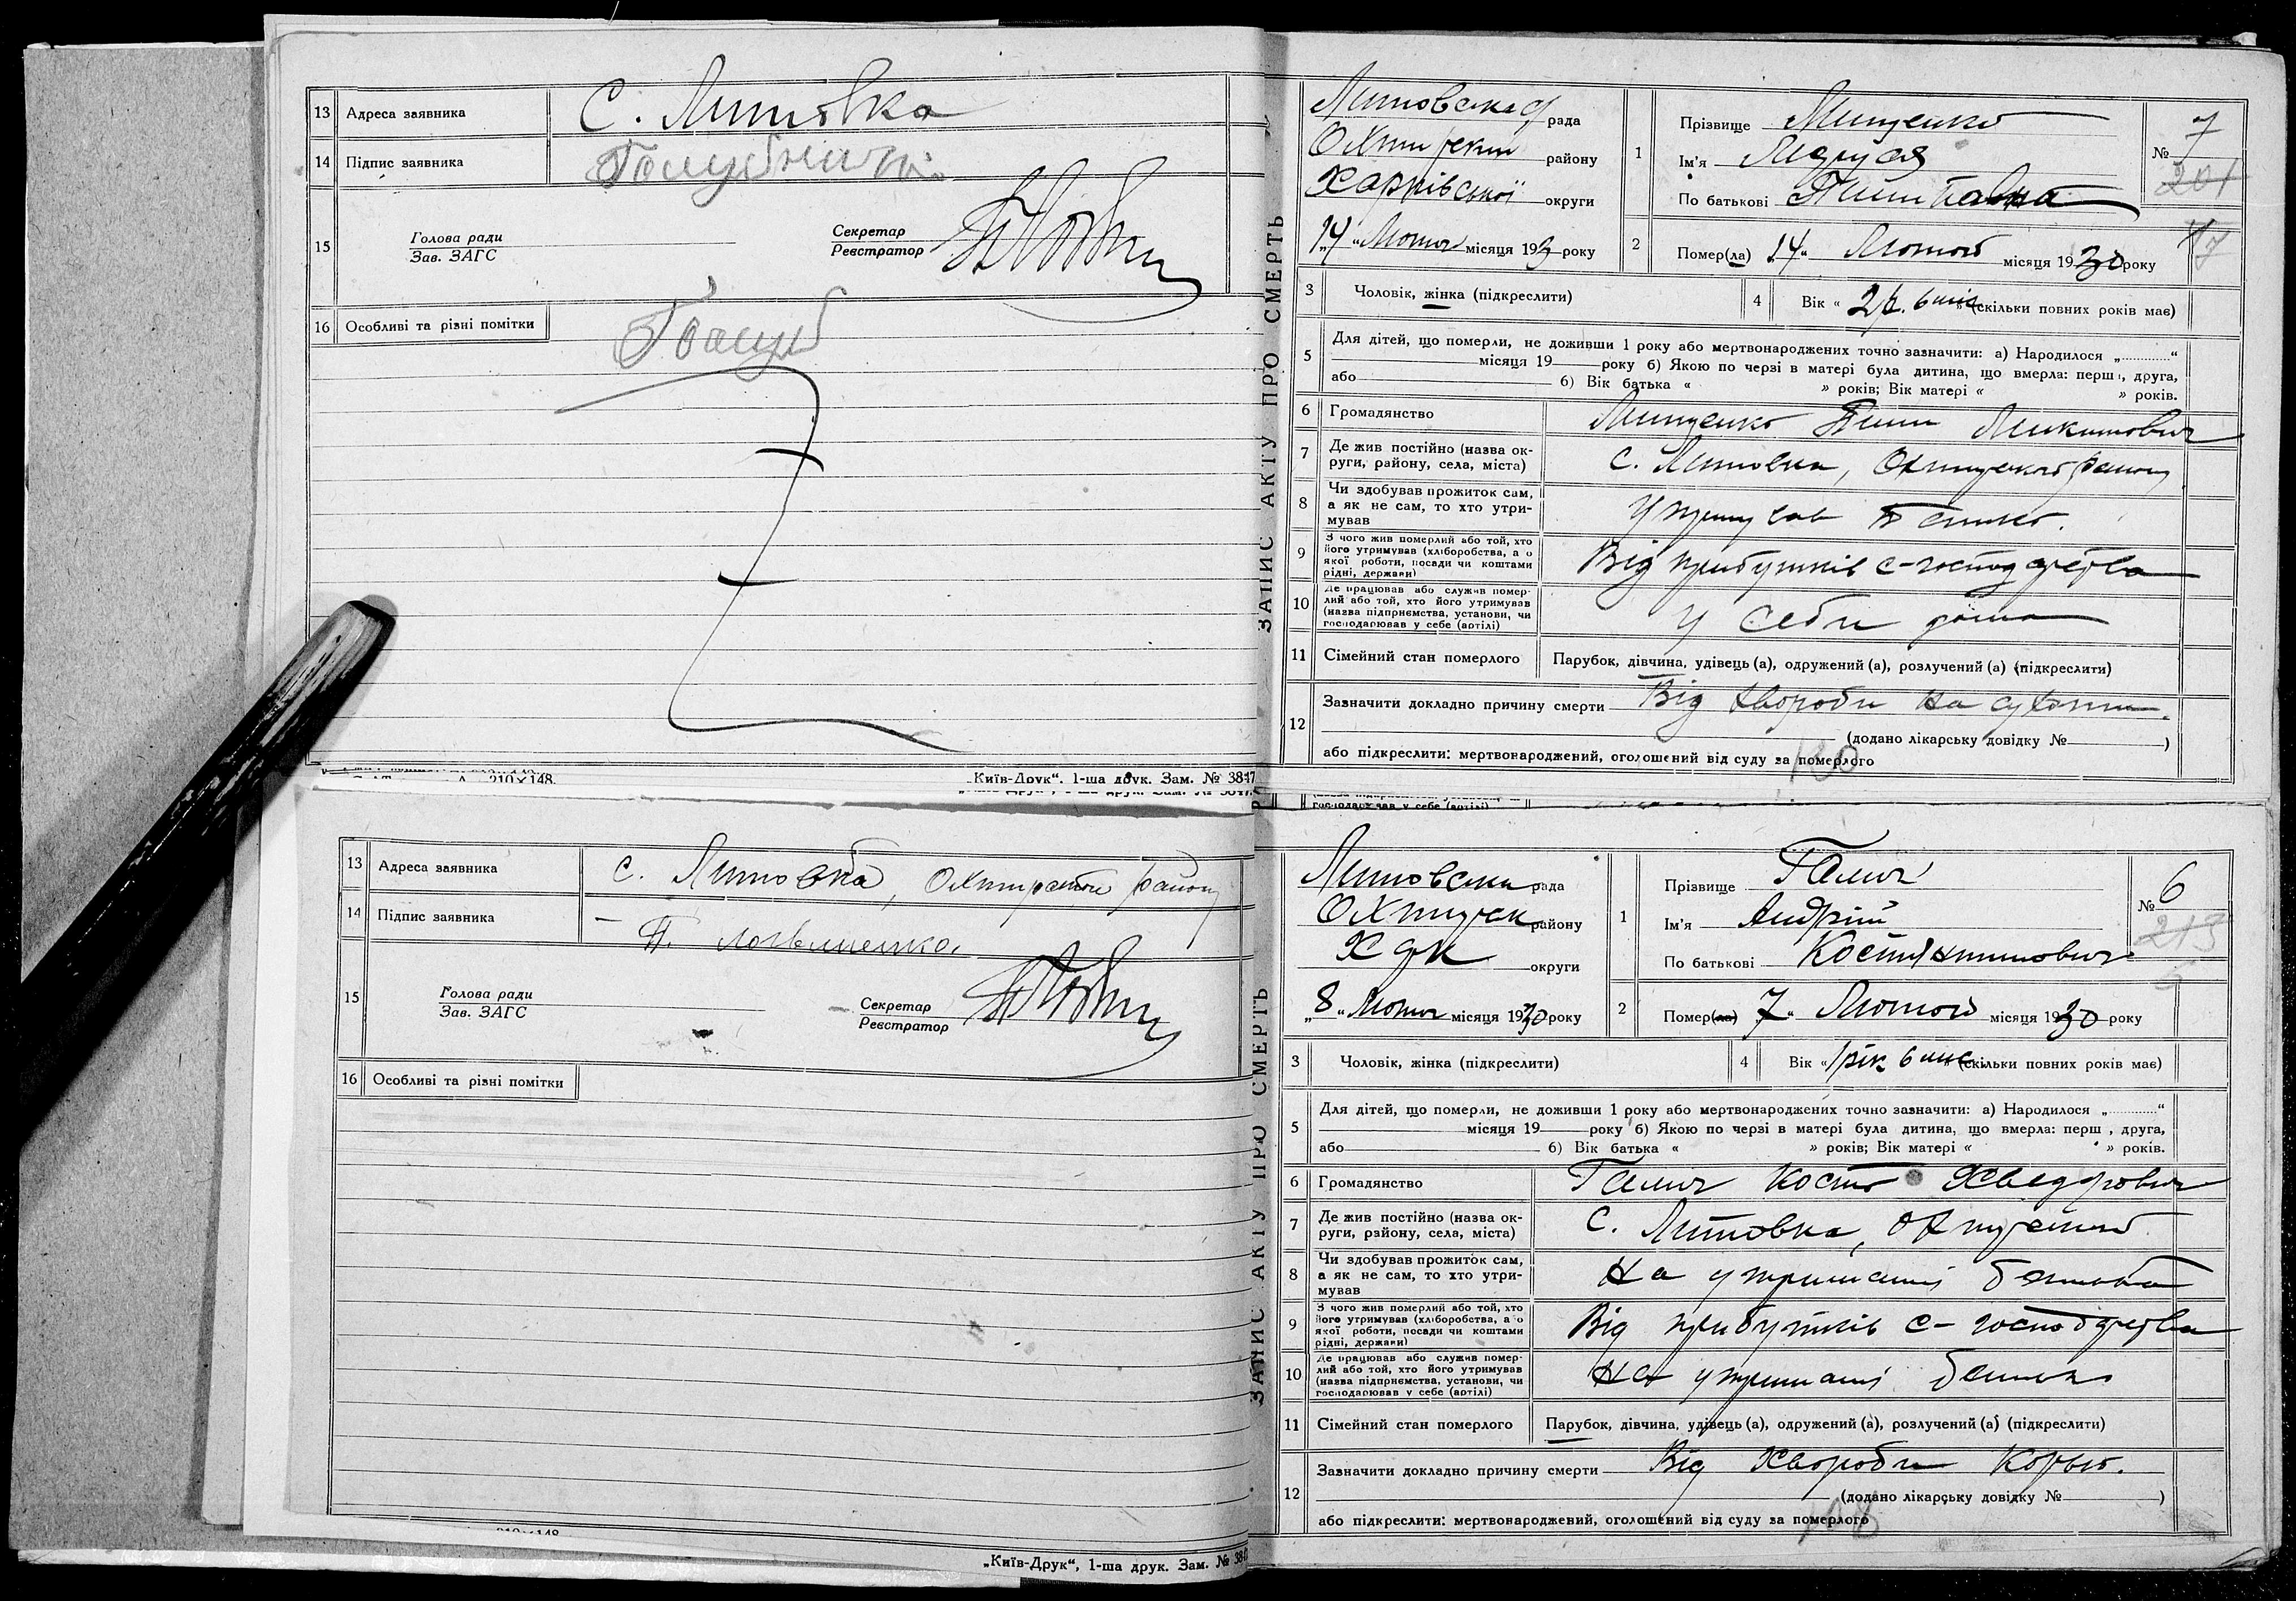 13 Адреса заявника С. Литовка
14 Підпис заявника
15 Голова ради
Зав. ЗАГС
Секретар
Реєстратор
16 Особливі та різні помітки
210×148.
„Київ-Друк“. 1-ша друк. Зам. № 3847
ЗАПИС АКТУ ПРО СМЕРТЬ
рада
Охтирськ району
Харківської округи
14 Лютого місяця 193 року
1 Прізвище Мищенко
Ім'я Маруся
По батькові
№ 7
201
2 Помер(ла) „14“ Лютого місяця 1930 року
3 Чоловік, жінка (підкреслити)
4 Вік « 2 р. 6 міс » (скільки повних років має)
5 Для дітей, що померли, не доживши 1 року або мертвонароджених точно зазначити: а) Народилося „ “
місяця 19 року б) Якою по черзі в матері була дитина, що вмерла: перша, друга,
або б) Вік батька « » років; Вік матері « » років.
6 Громадянство Мищенко Микитович
7 Де жив постійно (назва ок-
руги, району, села, міста) С. Литовка, Охтирського району
8 Чи здобував прожиток сам,
а як не сам, то хто утри-
мував Утримував Батько.
9 З чого жив померлий або той, хто
його утримував (хліборобства, а о
якої роботи, посади чи коштами
рідні, держави) Від прибутків с-господарства
10 Де працював або служив помер-
лий або той, хто його утримував
(назва підприємства, установи, чи
господарював у себе (артілі) У себе дома
11 Сімейний стан померлого Парубок, дівчина, удівець (а), одружений (а), розлучений (а) (підкреслити)
12 Зазначити докладно причину смерти Від хвороби на сухоти.
(додано лікарську довідку № )
або підкреслити: мертвонароджений, оголошений від суду за померлого
130
13 Адреса заявника С. Литовка, Охтирського району
14 Підпис заявника
15 Голова ради
Зав. ЗАГС
Секретар
Реєстратор
16 Особливі та різні помітки
„Київ-Друк“, 1-ша друк. Зам. №
ЗАПИС АКТУ ПРО СМЕРТЬ
Литовська рада
Охтирськ району
округи
„8“ Лютого місяця 1930 року
1 Прізвище Галич
Ім'я Андрій
По батькові Костянтинович
№ 6
2 Помер(ла) 7“ Лютого місяця 1930 року
3 Чоловік, жінка (підкреслити)
4 Вік « 1 рік 6 міс » (скільки повних років має)
5 Для дітей, що померли, не доживши 1 року або мертвонароджених точно зазначити: а) Народилося „ “
місяця 19 року б) Якою по черзі в матері була дитина, що вмерла: перш , друга,
або б) Вік батька « » років; Вік матері « » років.
6 Громадянство Галич Кость Хведорович
7 Де жив постійно (назва ок-
руги, району, села, міста) С. Литовка,
8 Чи здобував прожиток сам,
а як не сам, то хто утри-
мував На утриманні батька
9 З чого жив померлий або той, хто
його утримував (хліборобства, а о
якої роботи, посади чи коштами
рідні, держави) Від прибутків с-господарства
10 Де працював або служив помер-
лий або той, хто його утримував
(назва підприємства, установи, чи
господарював у себе (артілі) На утриманні батька
11 Сімейний стан померлого Парубок, дівчина, удівець (а), одружений (а), розлучений (а) (підкреслити)
12 Зазначити докладно причину смерти Від Хвороби Корью.
(додано лікарську довідку № )
або підкреслити: мертвонароджений, оголошений від суду за померлого